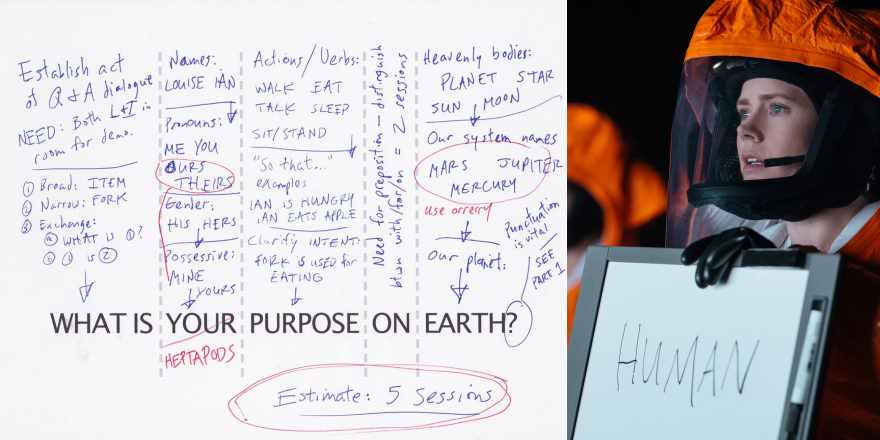 Establish act
of Q & A dialogue
NEED: Both L+I in
room for demo.
① Broad: ITEM
② Narrow: FORK
③ Exchange:
ⓐ WHAT IS ①?
ⓑ ① IS ②
Names:
LOUISE IAN
Pronouns:
ME YOU
OURS
THEIRS
Gender:
HIS HERS
Possessive:
MINE
YOURS
Actions/Verbs:
WALK EAT
TALK SLEEP
SIT/STAND
"So that..."
examples
IAN IS HUNGRY
IAN EATS APPLE
Clarify INTENT:
FORK IS USED FOR
EATING
Need for preposition – distinguish
btwn with/for/on = 2 sessions
Heavenly bodies:
PLANET STAR
SUN MOON
Our system names
MARS JUPITER
MERCURY
use orrery
Our planet:
Punctuation
is vital
SEE
PART 1
WHAT IS YOUR PURPOSE ON EARTH?
HEPTAPODS
Estimate: 5 sessions
HUMAN